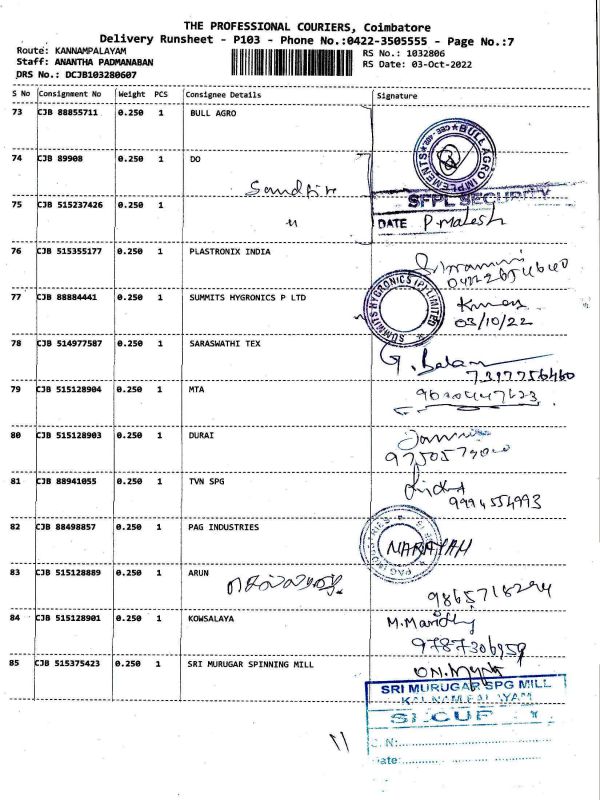 THE PROFESSIONAL COURIERS, Coimbatore
Delivery Runsheet - P103 - Phone No.:0422-3505555 - Page No.:7
Route: KANNAMPALAYAM RS No.: 1032806
Staff: ANANTHA PADMANABAN RS Date: 03-Oct-2022
DRS No.: DCJB103280607
S No Consignment No Weight PCS Consignee Details Signature
73 CJB 88855711 0.250 1 BULL AGRO
BULL AGRO IMPLEMENTS
74 CJB 89908 0.250 1 DO
SFPL SECURITY
75 CJB 515237426 0.250 1
DATE P.Malesh
76 CJB 515355177 0.250 1 PLASTRONIX INDIA
77 CJB 88884441 0.250 1 SUMMITS HYGRONICS P LTD
SUMMITS HYGRONICS (P) LIMITED
03/10/22
78 CJB 514977587 0.250 1 SARASWATHI TEX
G. Balan
7397756460
79 CJB 515128904 0.250 1 MTA
80 CJB 515128903 0.250 1 DURAI
81 CJB 88941055 0.250 1 TVN SPG
9994554993
82 CJB 88498857 0.250 1 PAG INDUSTRIES
PAG INDUSTRIES
NARAYAH
83 CJB 515128889 0.250 1 ARUN
9865718294
84 CJB 515128901 0.250 1 KOWSALAYA
9787306959
85 CJB 515375423 0.250 1 SRI MURUGAR SPINNING MILL
SRI MURUGAR SPG MILL